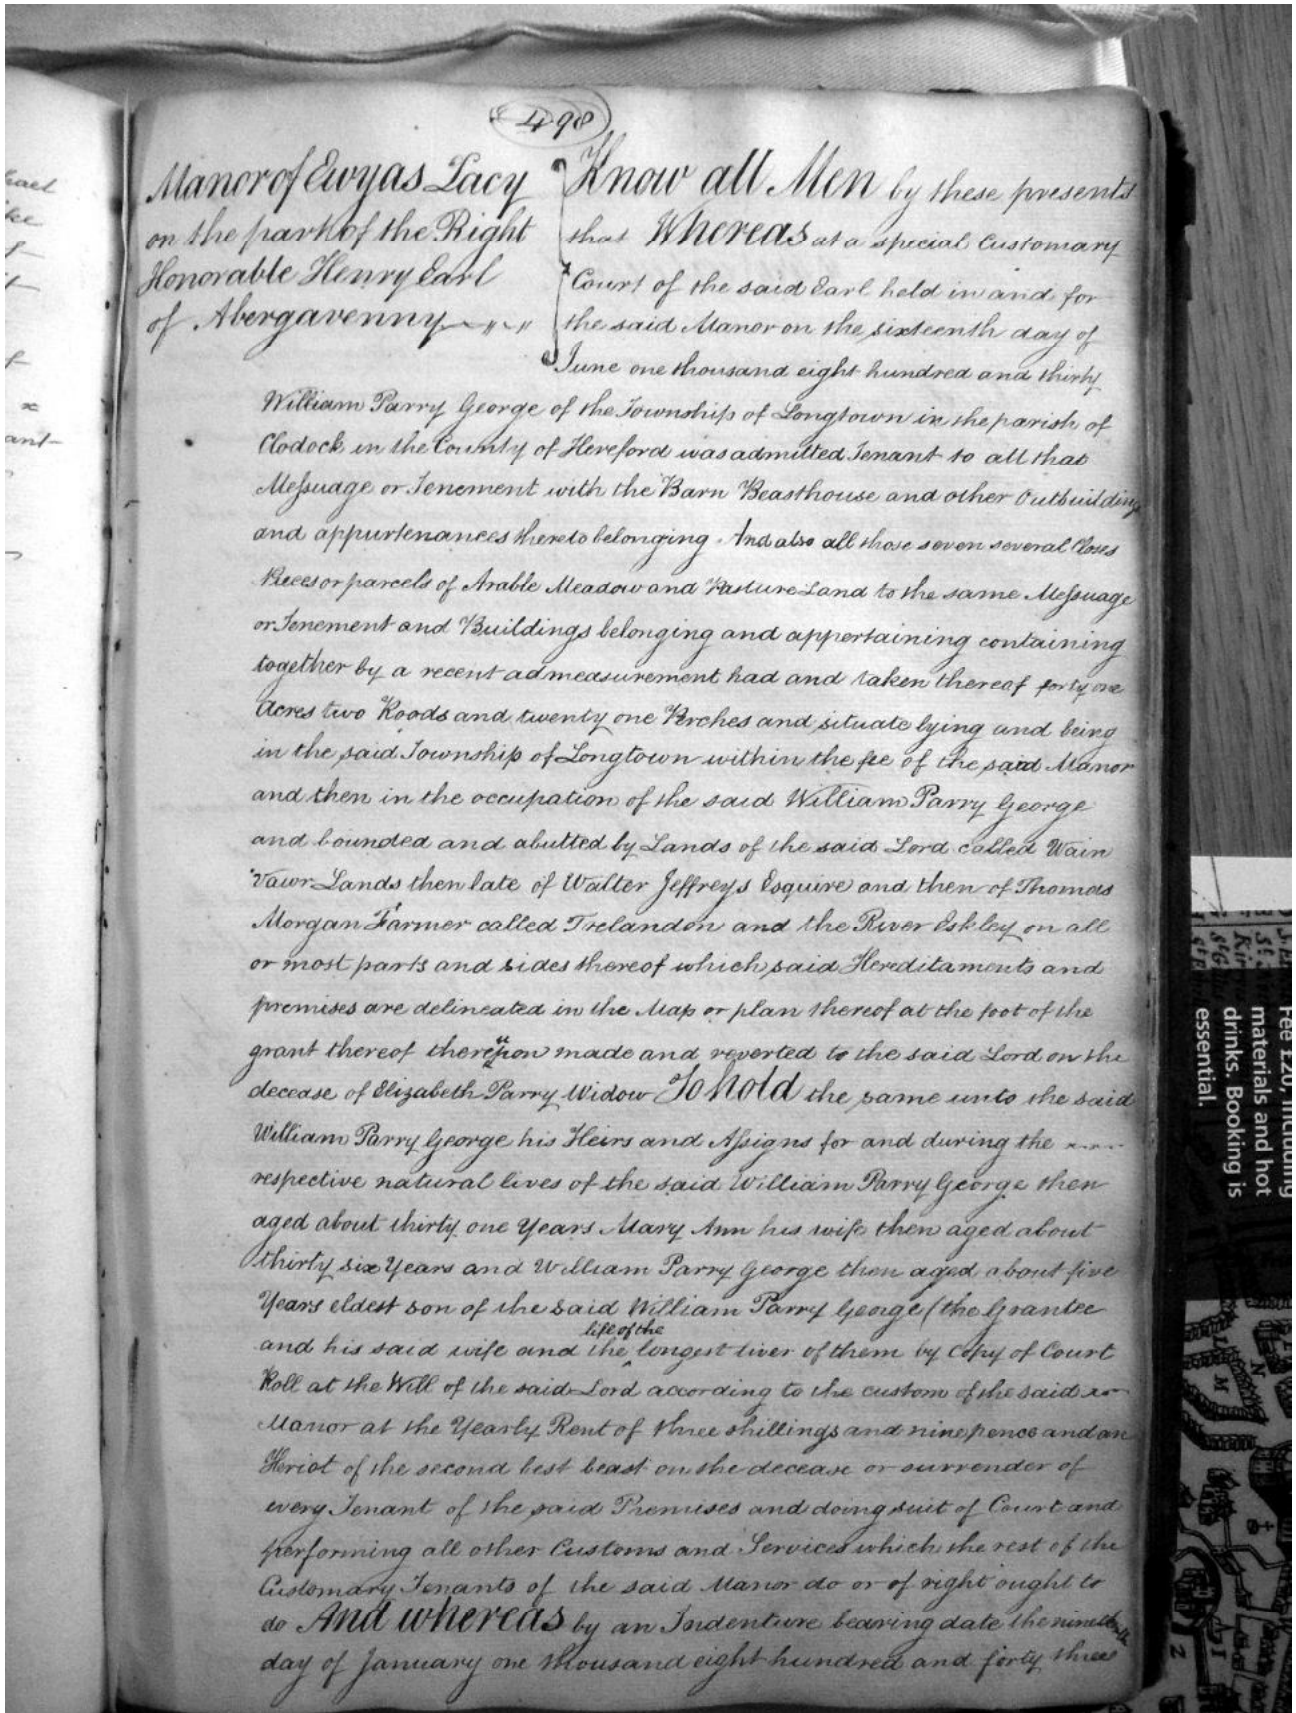 498
Manor of Ewyas Lacy
on the part of the Right
Honorable Henry Earl
of Abergavenny
Know all Men by these presents
that Whereas at a special Customary
Court of the said Earl held in and for
the said Manor on the sixteenth day of
June one thousand eight hundred and thirty
William Parry George of the Township of Longtown in the parish of
Clodock in the County of Hereford was admitted Tenant to all that
Messuage or Tenement with the Barn Beasthouse and other Outbuildings
and appurtenances thereto belonging And also all those seven several Closes
Pieces or parcels of Arable Meadow and Pasture Land to the same Messuage
or Tenement and Buildings belonging and appertaining containing
together by a recent admeasurement had and taken thereof forty one
Acres two Roods and twenty one Perches and situate lying and being
in the said Township of Longtown within the fee of the said Manor
and then in the occupation of the said William Parry George
and bounded and abutted by Lands of the said Lord called Wain
Vawr Lands then late of Walter Jeffreys Esquire and then of Thomas
Morgan Farmer called Trelandon and the River Eskley on all
or most parts and sides thereof which said Hereditaments and
premises are delineated in the Map or plan thereof at the foot of the
grant thereof thereupon made and reverted to the said Lord on the
decease of Elizabeth Parry Widow To hold the same unto the said
William Parry George his Heirs and Assigns for and during the
respective natural lives of the said William Parry George then
aged about thirty one Years Mary Ann his wife then aged about
thirty six Years and William Parry George then aged about five
Years eldest son of the said William Parry George (the Grantee
and his said wife and the life of the longest liver of them by Copy of Court
Roll at the Will of the said Lord according to the custom of the said
Manor at the Yearly Rent of three shillings and nine pence and an
Heriot of the second best beast on the decease or surrender of
every Tenant of the said Premises and doing suit of Court and
performing all other Customs and Services which the rest of the
Customary Tenants of the said Manor do or of right ought to
do And whereas by an Indenture bearing date the nineteenth
day of January one thousand eight hundred and forty three
Fee £20, including
materials and hot
drinks. Booking is
essential.